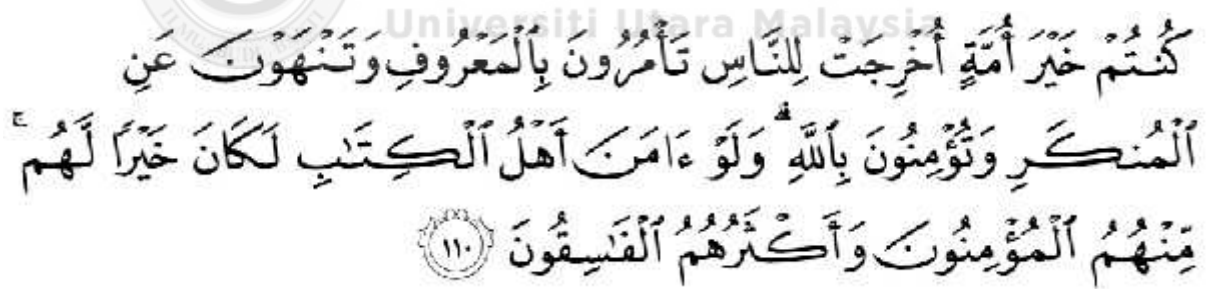 Universiti Utara Malaysia
كُنتُمْ خَيْرَ أُمَّةٍ أُخْرِجَتْ لِلنَّاسِ تَأْمُرُونَ بِٱلْمَعْرُوفِ وَتَنْهَوْنَ عَنِ
ٱلْمُنكَرِ وَتُؤْمِنُونَ بِٱللَّهِ ۗ وَلَوْ ءَامَنَ أَهْلُ ٱلْكِتَٰبِ لَكَانَ خَيْرًا لَّهُم ۚ
مِّنْهُمُ ٱلْمُؤْمِنُونَ وَأَكْثَرُهُمُ ٱلْفَٰسِقُونَ ١١٠